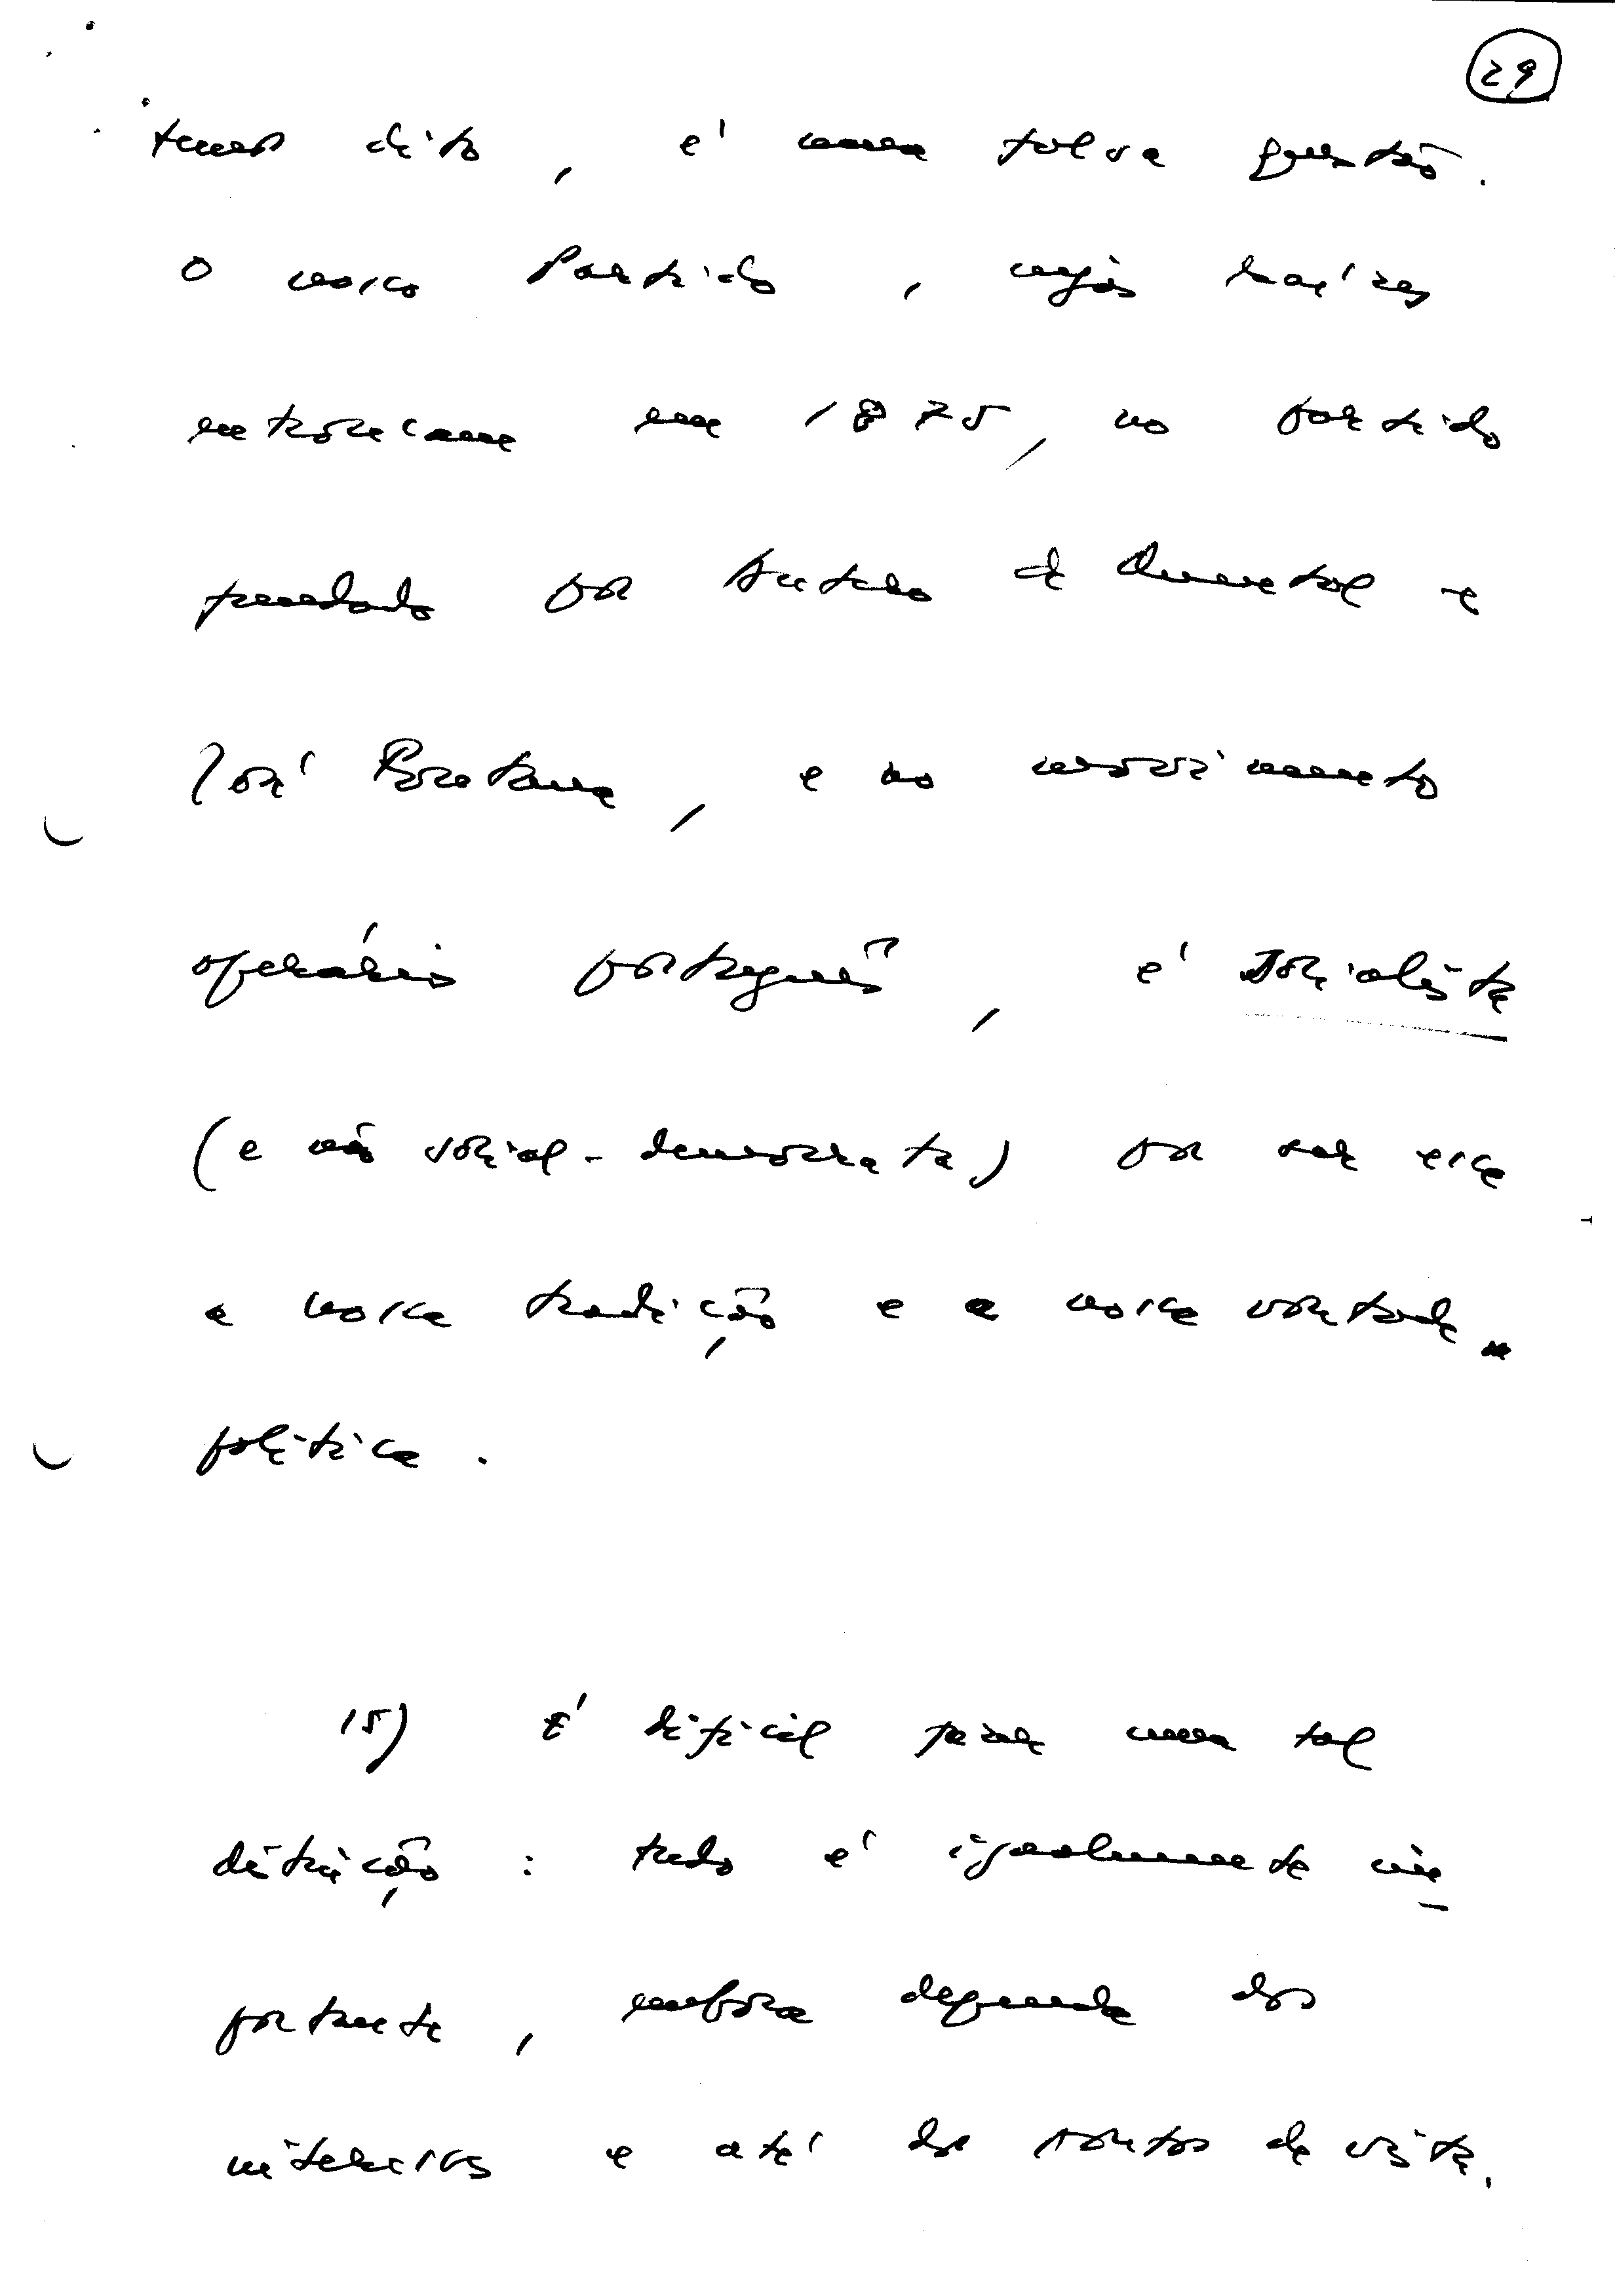 29
temos dito, é uma falsa questão.
O nosso Partido, cujas raízes
entroncam em 1875, no partido
fundado por Antero de Quental e
José Fontana, e no movimento
operário português, é socialista
(e não social-democrata) por ser essa
a nossa tradição e a nossa vontade
política.
15) É difícil fazer uma tal
distinção: tudo é igualmente im
portante, embora dependa dos
interesses e até dos pontos de vista.